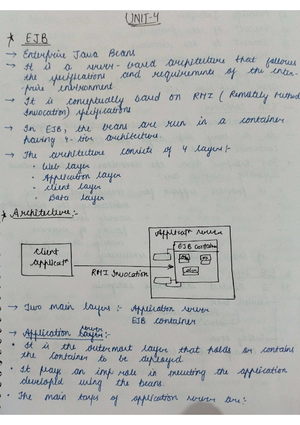 UNIT-4
* EJB
→ Enterprise Java Beans
→ It is a server-based architecture that follows
the specifications and requirements of the enter-
prise environment
→ It is conceptually based on RMI (Remotely Method
Invocation) specifications
→ In EJB, the beans are run in a container
having 4-tier architecture.
→ The architecture consists of 4 layers:-
• Web layer
• Application layer
• Client layer
• Data layer
* Architecture:-
Applicat° server
EJB Container
Client
Applicat°
RMI Invocation
→ Two main layers:- Application server
EJB container
→ Application server:-
• It is the outermost layer that holds or contains
the container to be deployed.
• It plays an imp role in executing the application
developed using the beans.
• The main tasks of application server are:-